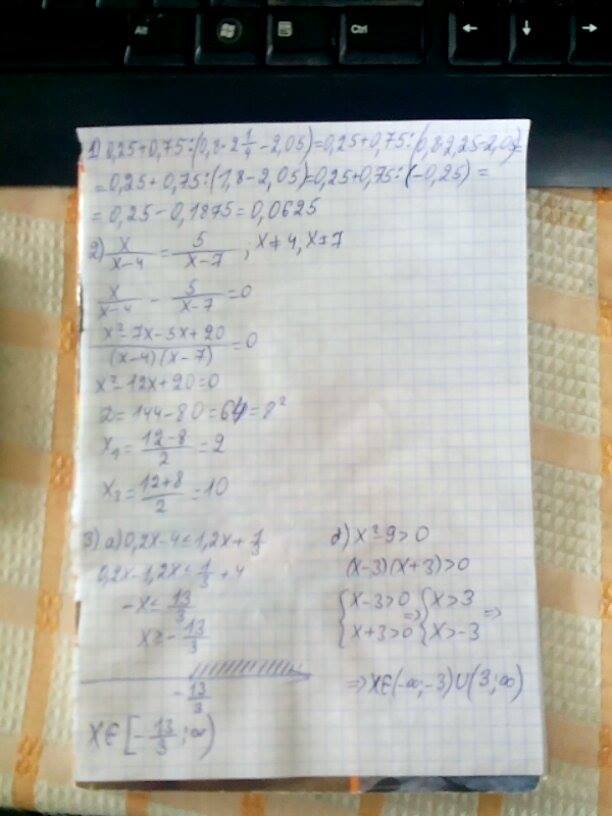 Alt
Ctrl
1) 0,25+0,75:(0,8·2 1/4 -2,05)=0,25+0,75:(0,8·2,25-2,05)=
=0,25+0,75:(1,8-2,05)=0,25+0,75:(-0,25)=
=0,25-0,1875=0,0625
2) x/(x-4) = 5/(x-7) ; x≠4, x≠7
x/(x-4) - 5/(x-7) =0
(x²-7x-5x+20)/((x-4)(x-7)) =0
x²-12x+20=0
D=144-80=64=8²
x₁= (12-8)/2 =2
x₂= (12+8)/2 =10
3) а) 0,2x-4≤1,2x+ 1/3
0,2x-1,2x≤ 1/3 +4
-x≤ 13/3
x≥- 13/3
- 13/3
x∈[- 13/3 ;∞)
б) x²-9>0
(x-3)(x+3)>0
{x-3>0 => {x>3 =>
{x+3>0 {x>-3
=>x∈(-∞;-3)∪(3;∞)